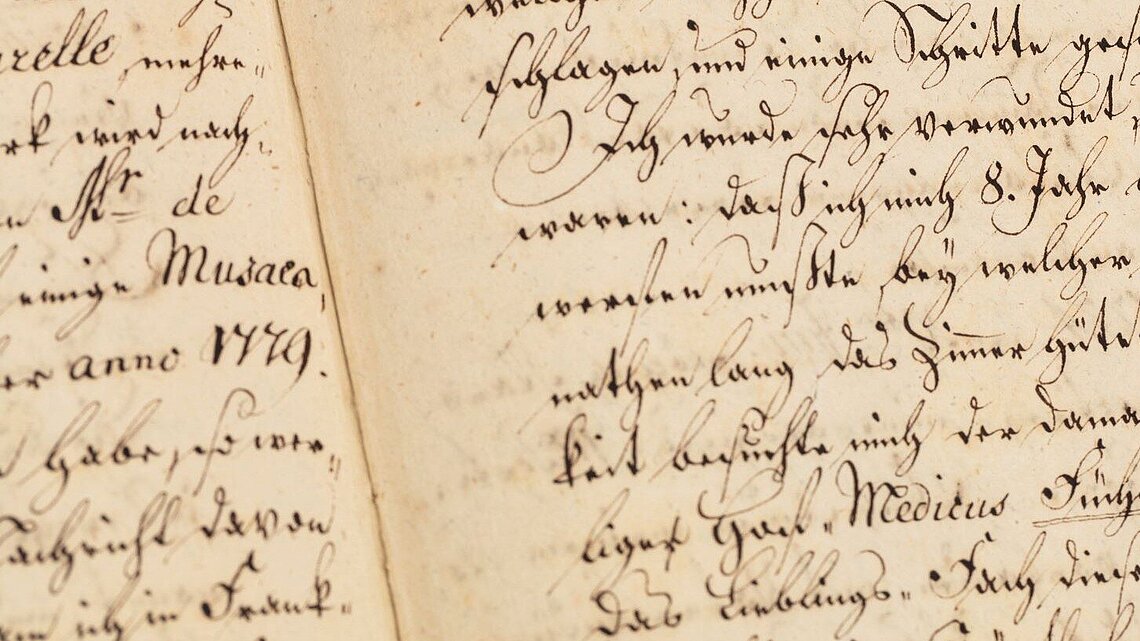 relle mehre„
rk wird nach„
n Mr. de
einige Musaea,
er anno 1779.
habe, so wer„
Nachricht davon
ich in Frank„
schlagen, und einige Schritte ges
Ich wurde sehr verwundet,
waren: daß ich mich 8. Jahr
werden mußte, bey welcher
nathen lang das Zimer hüte
keit besuchte mich der dama
liger Hof„ Medicus
das Lieblings„ Fach diese